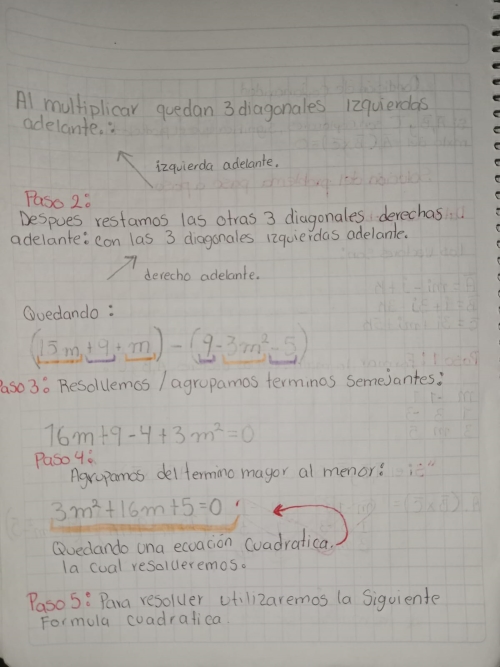 Al multiplicar quedan 3 diagonales izquierdas
adelante.:
izquierda adelante.
Paso 2:
Despues restamos las otras 3 diagonales derechas
adelante: con las 3 diagonales izquierdas adelante.
derecho adelante.
Quedando:
(15m+9+m) - (9-3m²-5)
Paso 3: Resolvemos / agrupamos terminos semejantes:
16m+9-4+3m²=0
Paso 4:
Agrupamos del termino mayor al menor:
3m²+16m+5=0
Quedando una ecuación cuadratica.
la cual resolveremos.
Paso 5: Para resolver utilizaremos la siguiente
Formula cuadratica